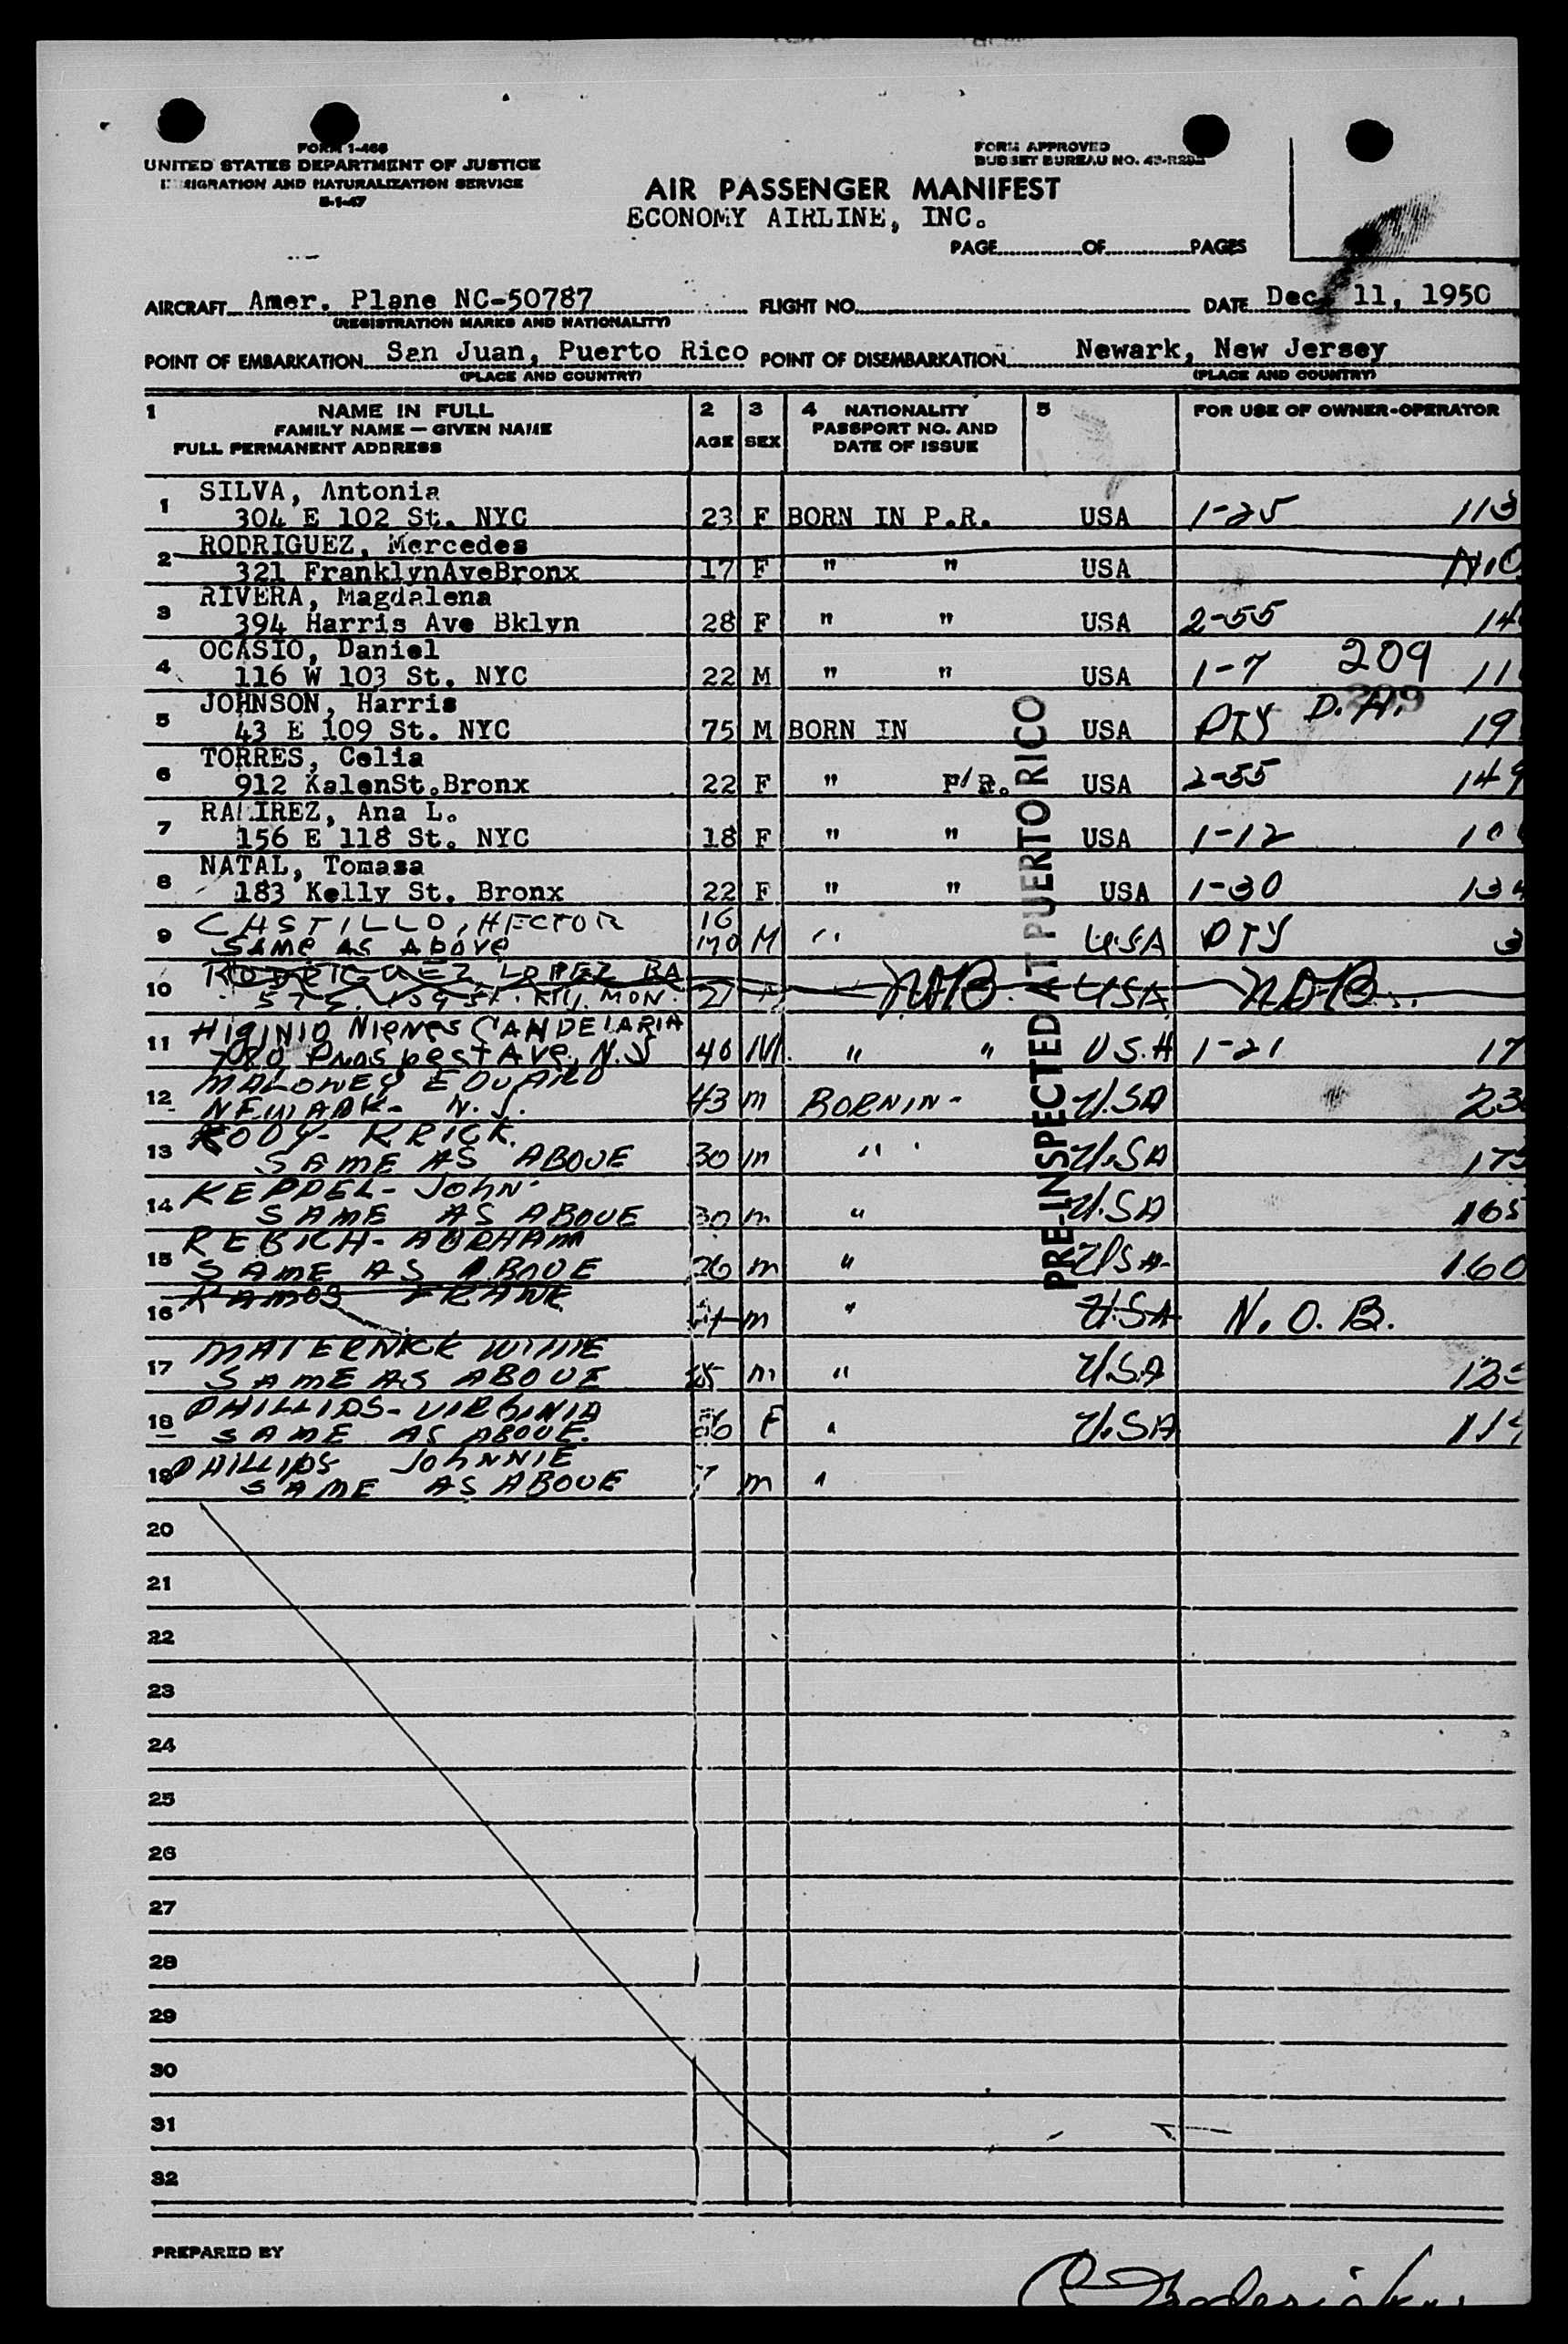 FORM I-466
UNITED STATES DEPARTMENT OF JUSTICE
IMMIGRATION AND NATURALIZATION SERVICE
5-1-47
FORM APPROVED
BUDGET BUREAU NO.
AIR PASSENGER MANIFEST
ECONOMY AIRLINE, INC.
PAGE OF PAGES
AIRCRAFT Amer. Plane NC-50787 FLIGHT NO. DATE Dec. 11, 1950
(REGISTRATION MARKS AND NATIONALITY)
POINT OF EMBARKATION San Juan, Puerto Rico POINT OF DISEMBARKATION Newark, New Jersey
(PLACE AND COUNTRY) (PLACE AND COUNTRY)
1 NAME IN FULL 2 3 4 NATIONALITY 5 FOR USE OF OWNER-OPERATOR
FAMILY NAME — GIVEN NAME AGE SEX PASSPORT NO. AND
FULL PERMANENT ADDRESS DATE OF ISSUE
1 SILVA, Antonia
304 E 102 St. NYC 23 F BORN IN P.R. USA 1-25 113
2 RODRIGUEZ, Mercedes
321 FranklynAveBronx 17 F " " USA N.O
3 RIVERA, Magdalena
394 Harris Ave Bklyn 28 F " " USA 2-55 14
4 OCASIO, Daniel
116 W 103 St. NYC 22 M " " USA 1-7 209 11
5 JOHNSON, Harris 209
43 E 109 St. NYC 75 M BORN IN USA PTY D.H. 19
6 TORRES, Celia
912 KalenSt.Bronx 22 F " P/R. USA 2-55 149
7 RAMIREZ, Ana L.
156 E 118 St. NYC 18 F " " USA 1-12 10
8 NATAL, Tomasa
183 Kelly St. Bronx 22 F " " USA 1-30 134
9 CASTILLO, HECTOR 16
SAME AS Above M " U.S.A PTY 3
10 RODRIGUEZ LOPEZ RA
21 N.O.B. USA N.O.B.
11 HIGINIO NIEVES CANDELARIA
Prospect Ave, N.Y 40 M. " " U.S.A 1-21 17
12 MALONEY EDUARD
NEWARK- N.J. 43 m BORN IN- U.S.A 23
13 KODY- KRICK.
SAME AS ABOVE 30 m " U.S.A 175
14 KEPPEL- JOHN-
SAME AS ABOVE 30 m " U.S.A 165
15 REBICH- ABRHAM
SAME AS ABOVE 26 m " U.S.A- 160
16 RAMOS FRANK
m " U.S.A N.O.B.
17 MATERNICK WILLIE
SAME AS ABOVE m " U.S.A
18 PHILLIPS- VIRGINIA
SAME AS ABOVE. F " U.S.A
19 PHILLIPS JOHNNIE
SAME AS ABOVE 7 m "
PRE-INSPECTED AT PUERTO RICO
20
21
22
23
24
25
26
27
28
29
30
31
32
PREPARED BY